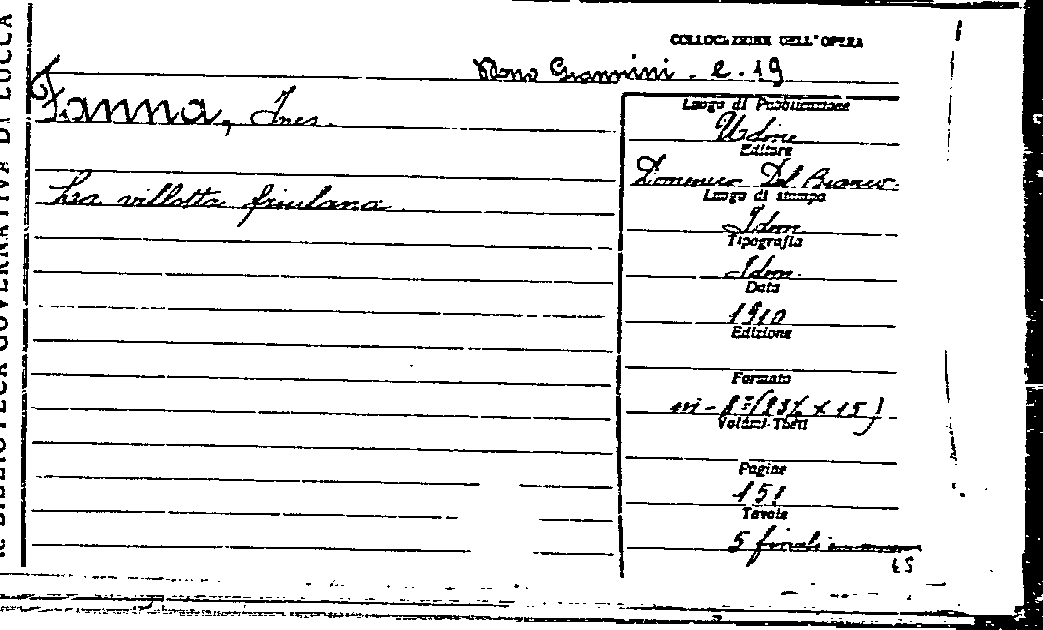 R. BIBLIOTECA GOVERNATIVA DI LUCCA
COLLOCAZIONE DELL'OPERA
Mons Giannini . e . 19
Fanna, Ines.
La villotta friulana
Luogo di Pubblicazione
Udine
Editore
Domenico Del Bianco.
Luogo di stampa
Idem
Tipografia
Idem.
Data
1910
Edizione
Formato
in-8° (23½ x 15)
Volumi-Tomi
Pagine
151
Tavole
5 finali